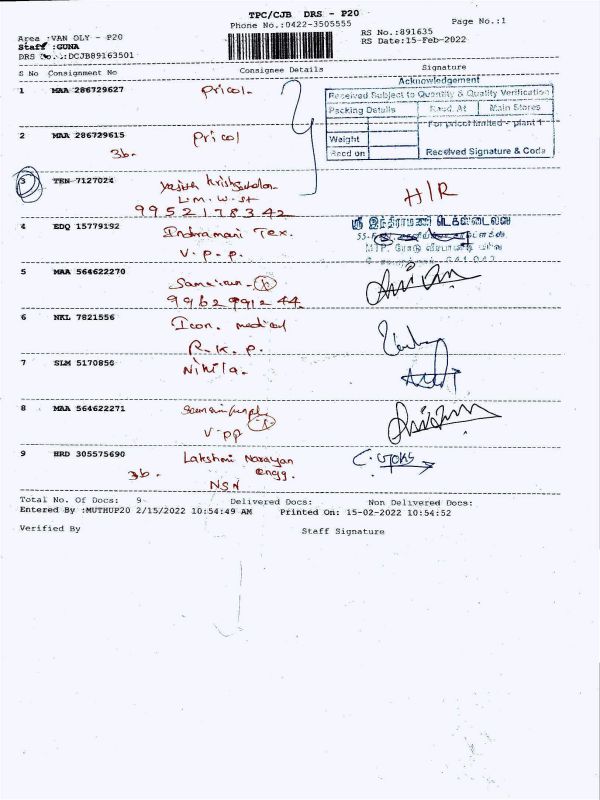 TPC/CJB DRS - P20
Phone No.:0422-3505555
Page No.:1
RS No.:891635
RS Date:15-Feb-2022
Area :VAN OLY - P20
Staff :GUNA
DRS No.:DCJB89163501
S No Consignment No Consignee Details Signature
Acknowledgement
Received Subject to Quantity & Quality Verification
Packing Details Recd. At Main Stores
For pricol limited - plant 1
Weight
Recd on Received Signature & Code
1 MAA 286729627 Pricol.
2 MAA 286729615 Pricol
3b.
3 TEN 7127024
L.M.W. St H/R
9952178342
4 EDQ 15779192 Indramani Tex.
V.P.P.
ஸ்ரீ இந்திராமணி டெக்ஸ்டைல்ஸ்
5 MAA 564622270
9962991244
6 NKL 7821556 Icon. medical
R.K.P.
7 SLM 5170856 Nikila.
8 MAA 564622271
V.PP
9 HRD 305575690 Lakshmi Narayan
3b. engg.
NSN
Total No. Of Docs: 9 Delivered Docs: Non Delivered Docs:
Entered By :MUTHUP20 2/15/2022 10:54:49 AM Printed On: 15-02-2022 10:54:52
Verified By Staff Signature